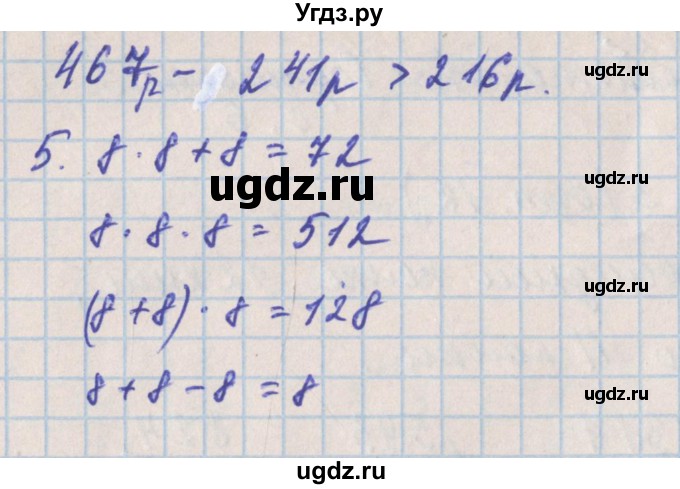 Угдз.ру
467р - 241р > 216р.
ugdz.ru
5. 8 · 8 + 8 = 72
ugdz.ru
ugdz.ru
8 · 8 · 8 = 512
ugdz.ru
(8 + 8) · 8 = 128
8 + 8 - 8 = 8
ugdz.ru
ugdz.ru